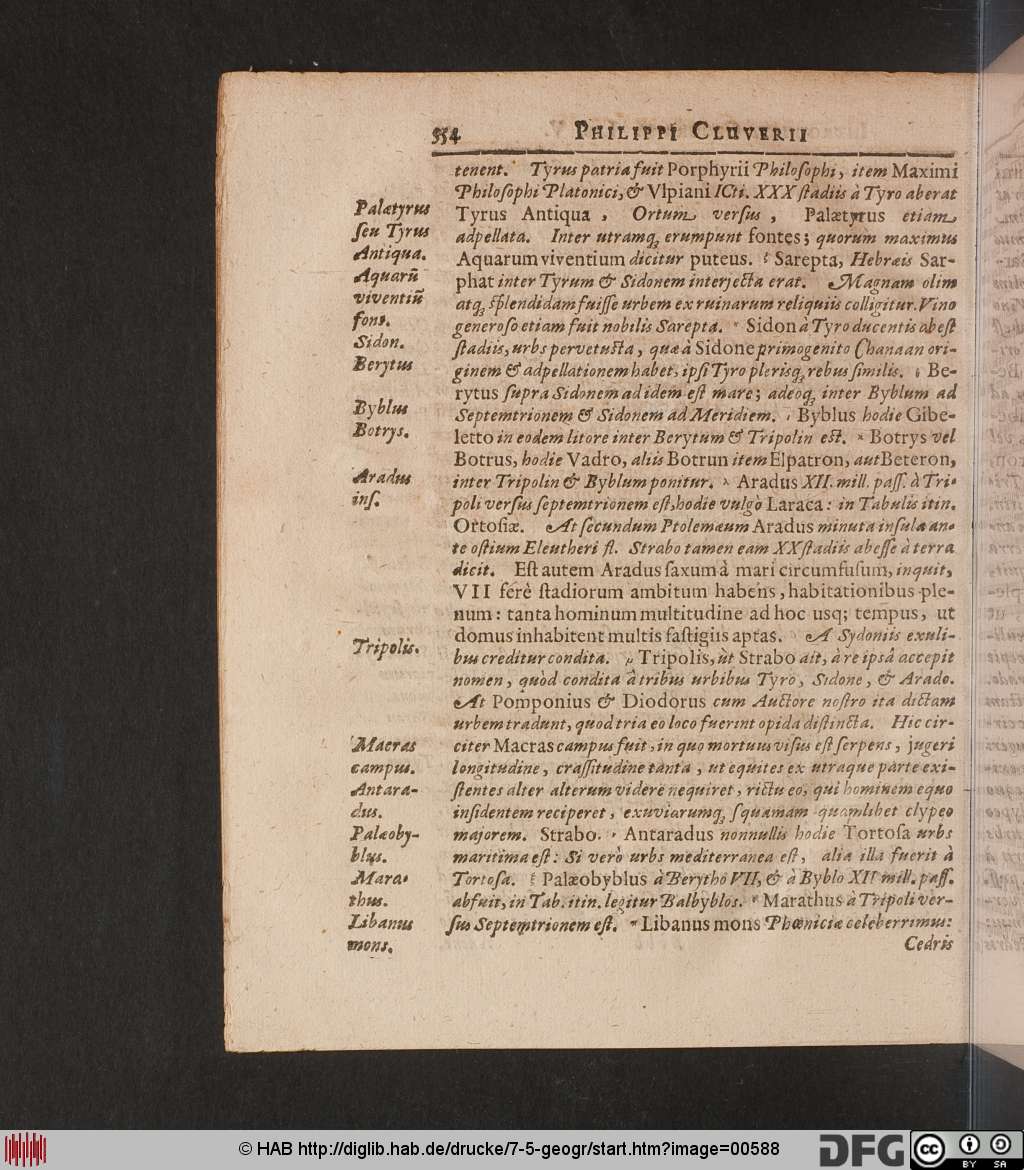 554 PHILIPPI CLUVERII
tenent. Tyrus patria fuit Porphyrii Philosophi, item Maximi
Philosophi Platonici, & Vlpiani ICti. XXX stadiis à Tyro aberat
Tyrus Antiqua, Ortum versus, Palætyrus etiam
adpellata. Inter utramq; erumpunt fontes; quorum maximus
Aquarum viventium dicitur puteus. Sarepta, Hebræis Sar-
phat inter Tyrum & Sidonem interjecta erat. Magnam olim
atq; splendidam fuisse urbem ex ruinarum reliquiis colligitur. Vino
generoso etiam fuit nobilis Sarepta. Sidon à Tyro ducentis abest
stadiis, urbs pervetusta, quæ à Sidone primogenito Chanaan ori-
ginem & adpellationem habet, ipsi Tyro plerisq; rebus similis. Be-
rytus supra Sidonem ad idem est mare; adeoq; inter Byblum ad
Septemtrionem & Sidonem ad Meridiem. Byblus hodie Gibe-
letto in eodem litore inter Berytum & Tripolin est. Botrys vel
Botrus, hodie Vadro, aliis Botrun item Elpatron, aut Beteron,
inter Tripolin & Byblum ponitur. Aradus XII. mill. pass. à Tri-
poli versus septemtrionem est, hodie vulgò Laraca: in Tabulis itin.
Ortosiæ. At secundum Ptolemæum Aradus minuta insula an-
te ostium Eleutheri fl. Strabo tamen eam XX stadiis abesse à terra
dicit. Est autem Aradus saxum à mari circumfusum, inquit,
VII ferè stadiorum ambitum habens, habitationibus ple-
num: tanta hominum multitudine ad hoc usq; tempus, ut
domus inhabitent multis fastigiis aptas. A Sydoniis exuli-
bus creditur condita. Tripolis, ùt Strabo ait, à re ipsâ accepit
nomen, quòd condita à tribus urbibus Tyro, Sidone, & Arado.
At Pomponius & Diodorus cum Auctore nostro ita dictam
urbem tradunt, quod tria eo loco fuerint opida distincta. Hic cir-
citer Macras campus fuit, in quo mortuus visus est serpens, jugeri
longitudine, crassitudine tanta, ut equites ex utraque parte exi-
stentes alter alterum videre nequiret, rictu eo, qui hominem equo
insidentem reciperet, exuviarumq; squamam quamlibet clypeo
majorem. Strabo. Antaradus nonnullis hodie Tortosa urbs
maritima est: Si verò urbs mediterranea est, alia illa fuerit à
Tortosa. Palæobyblus à Berytho VII, & à Byblo XII mill. pass.
abfuit, in Tab. itin. legitur Balbyblos. Marathus à Tripoli ver-
sus Septemtrionem est. Libanus mons Phœniciæ celeberrimus:
Cedris
Palætyrus
seu Tyrus
Antiqua.
Aquarũ
viventiũ
fons.
Sidon.
Berytus
Byblus
Botrys.
Aradus
ins.
Tripolis.
Macras
campus.
Antara-
dus.
Palæoby-
blus.
Mara-
thus.
Libanus
mons.
© HAB http://diglib.hab.de/drucke/7-5-geogr/start.htm?image=00588
DFG
cc BY SA